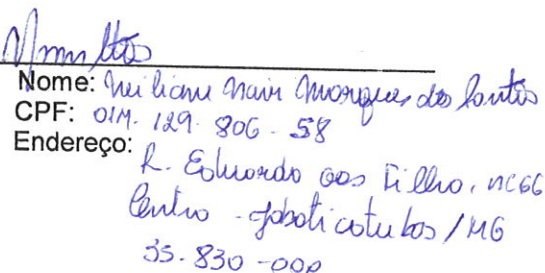 Nome: Miliane Nair Marques dos Santos
CPF: 014.129.806-58
Endereço:
R. Eduardo Filho, nº 66
Centro - Jaboticatubas/MG
35.830-000